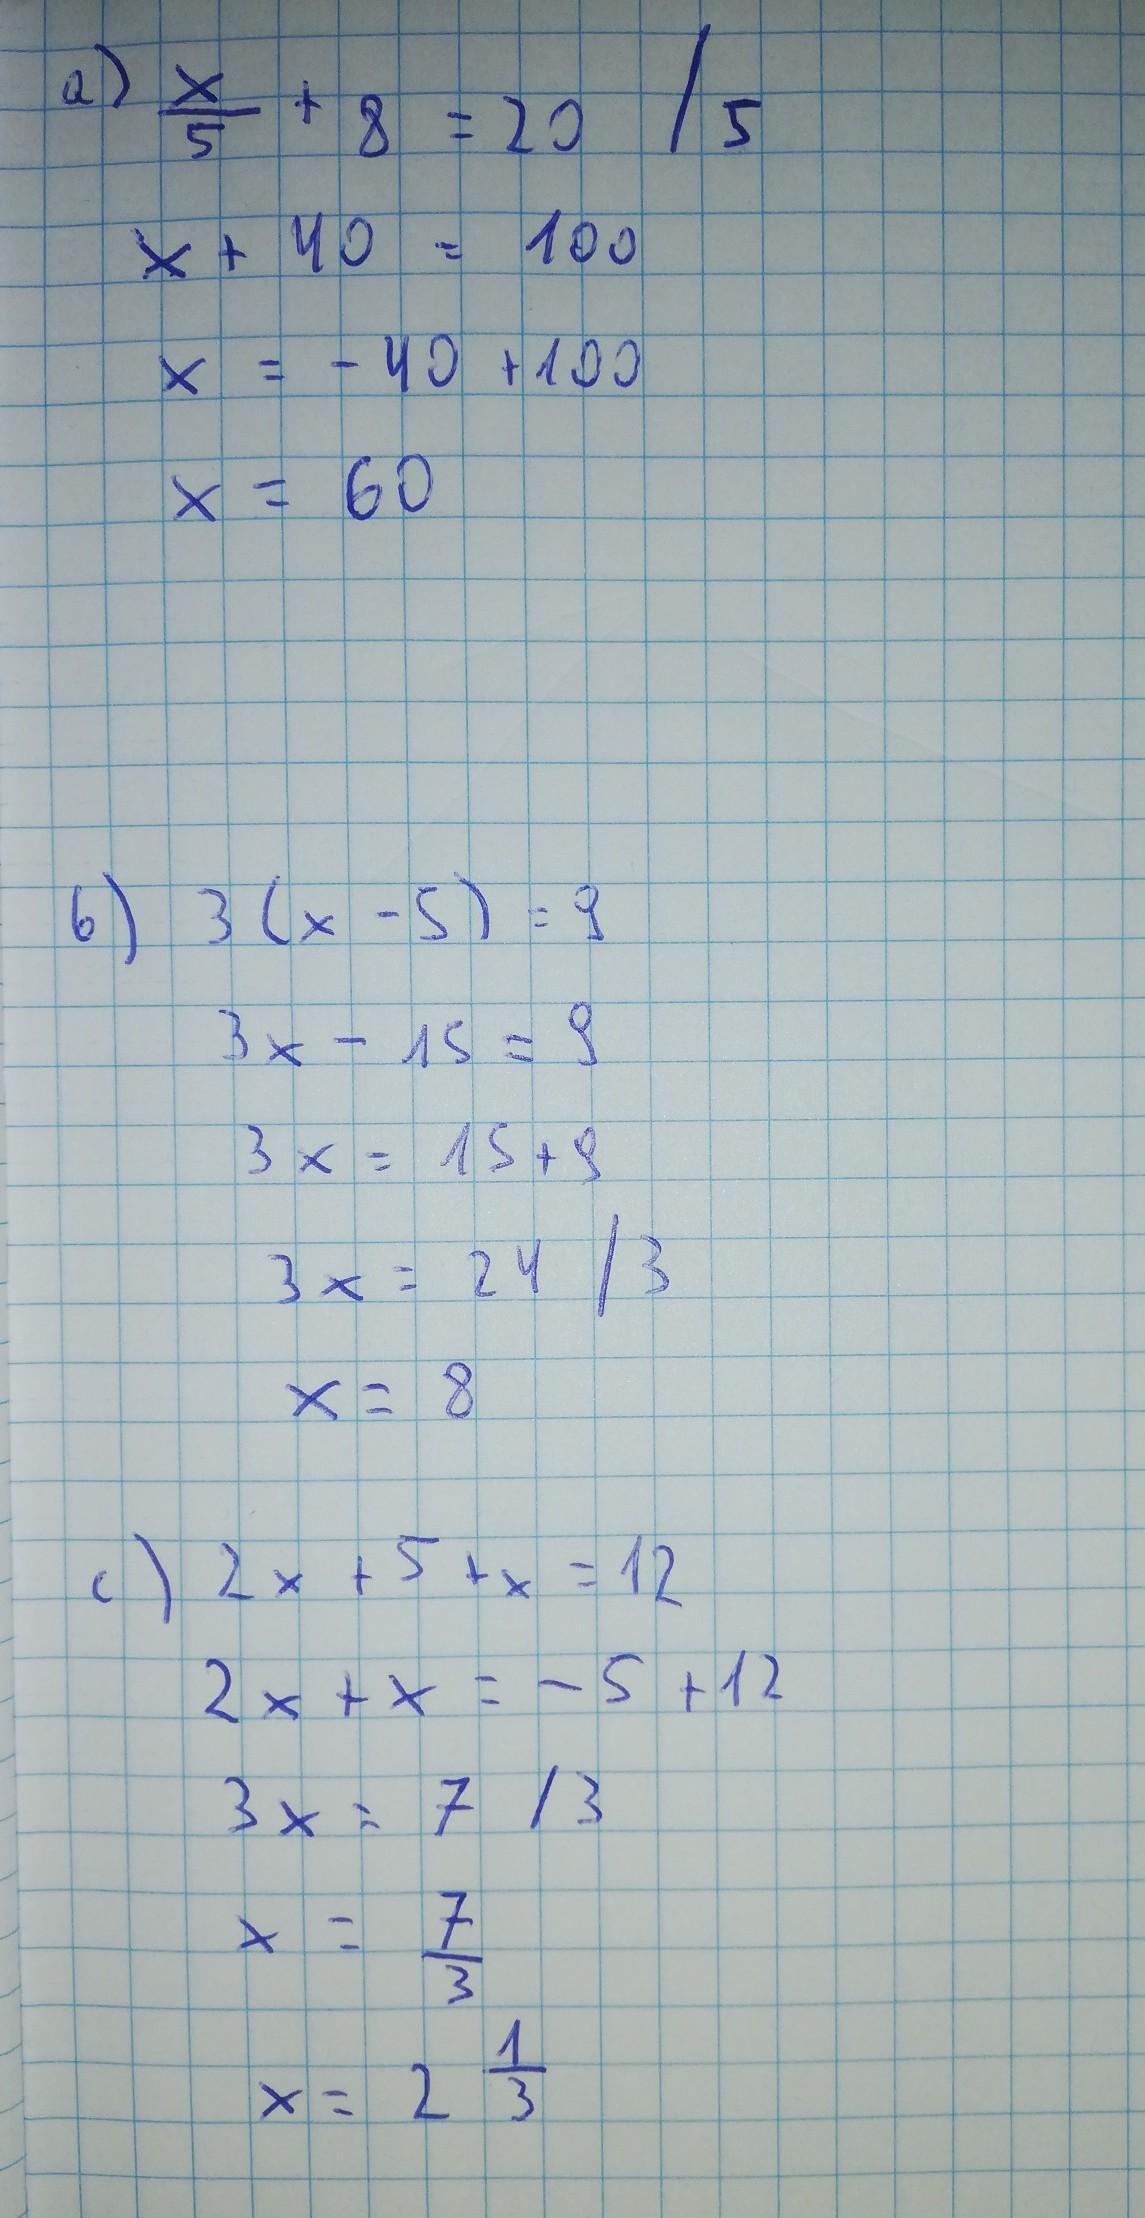 a) x/5 + 8 = 20 / 5
x + 40 = 100
x = - 40 + 100
x = 60
b) 3 (x - 5) = 9
3x - 15 = 9
3x = 15 + 9
3x = 24 / 3
x = 8
c) 2x + 5 + x = 12
2x + x = - 5 + 12
3x = 7 / 3
x = 7/3
x = 2 1/3